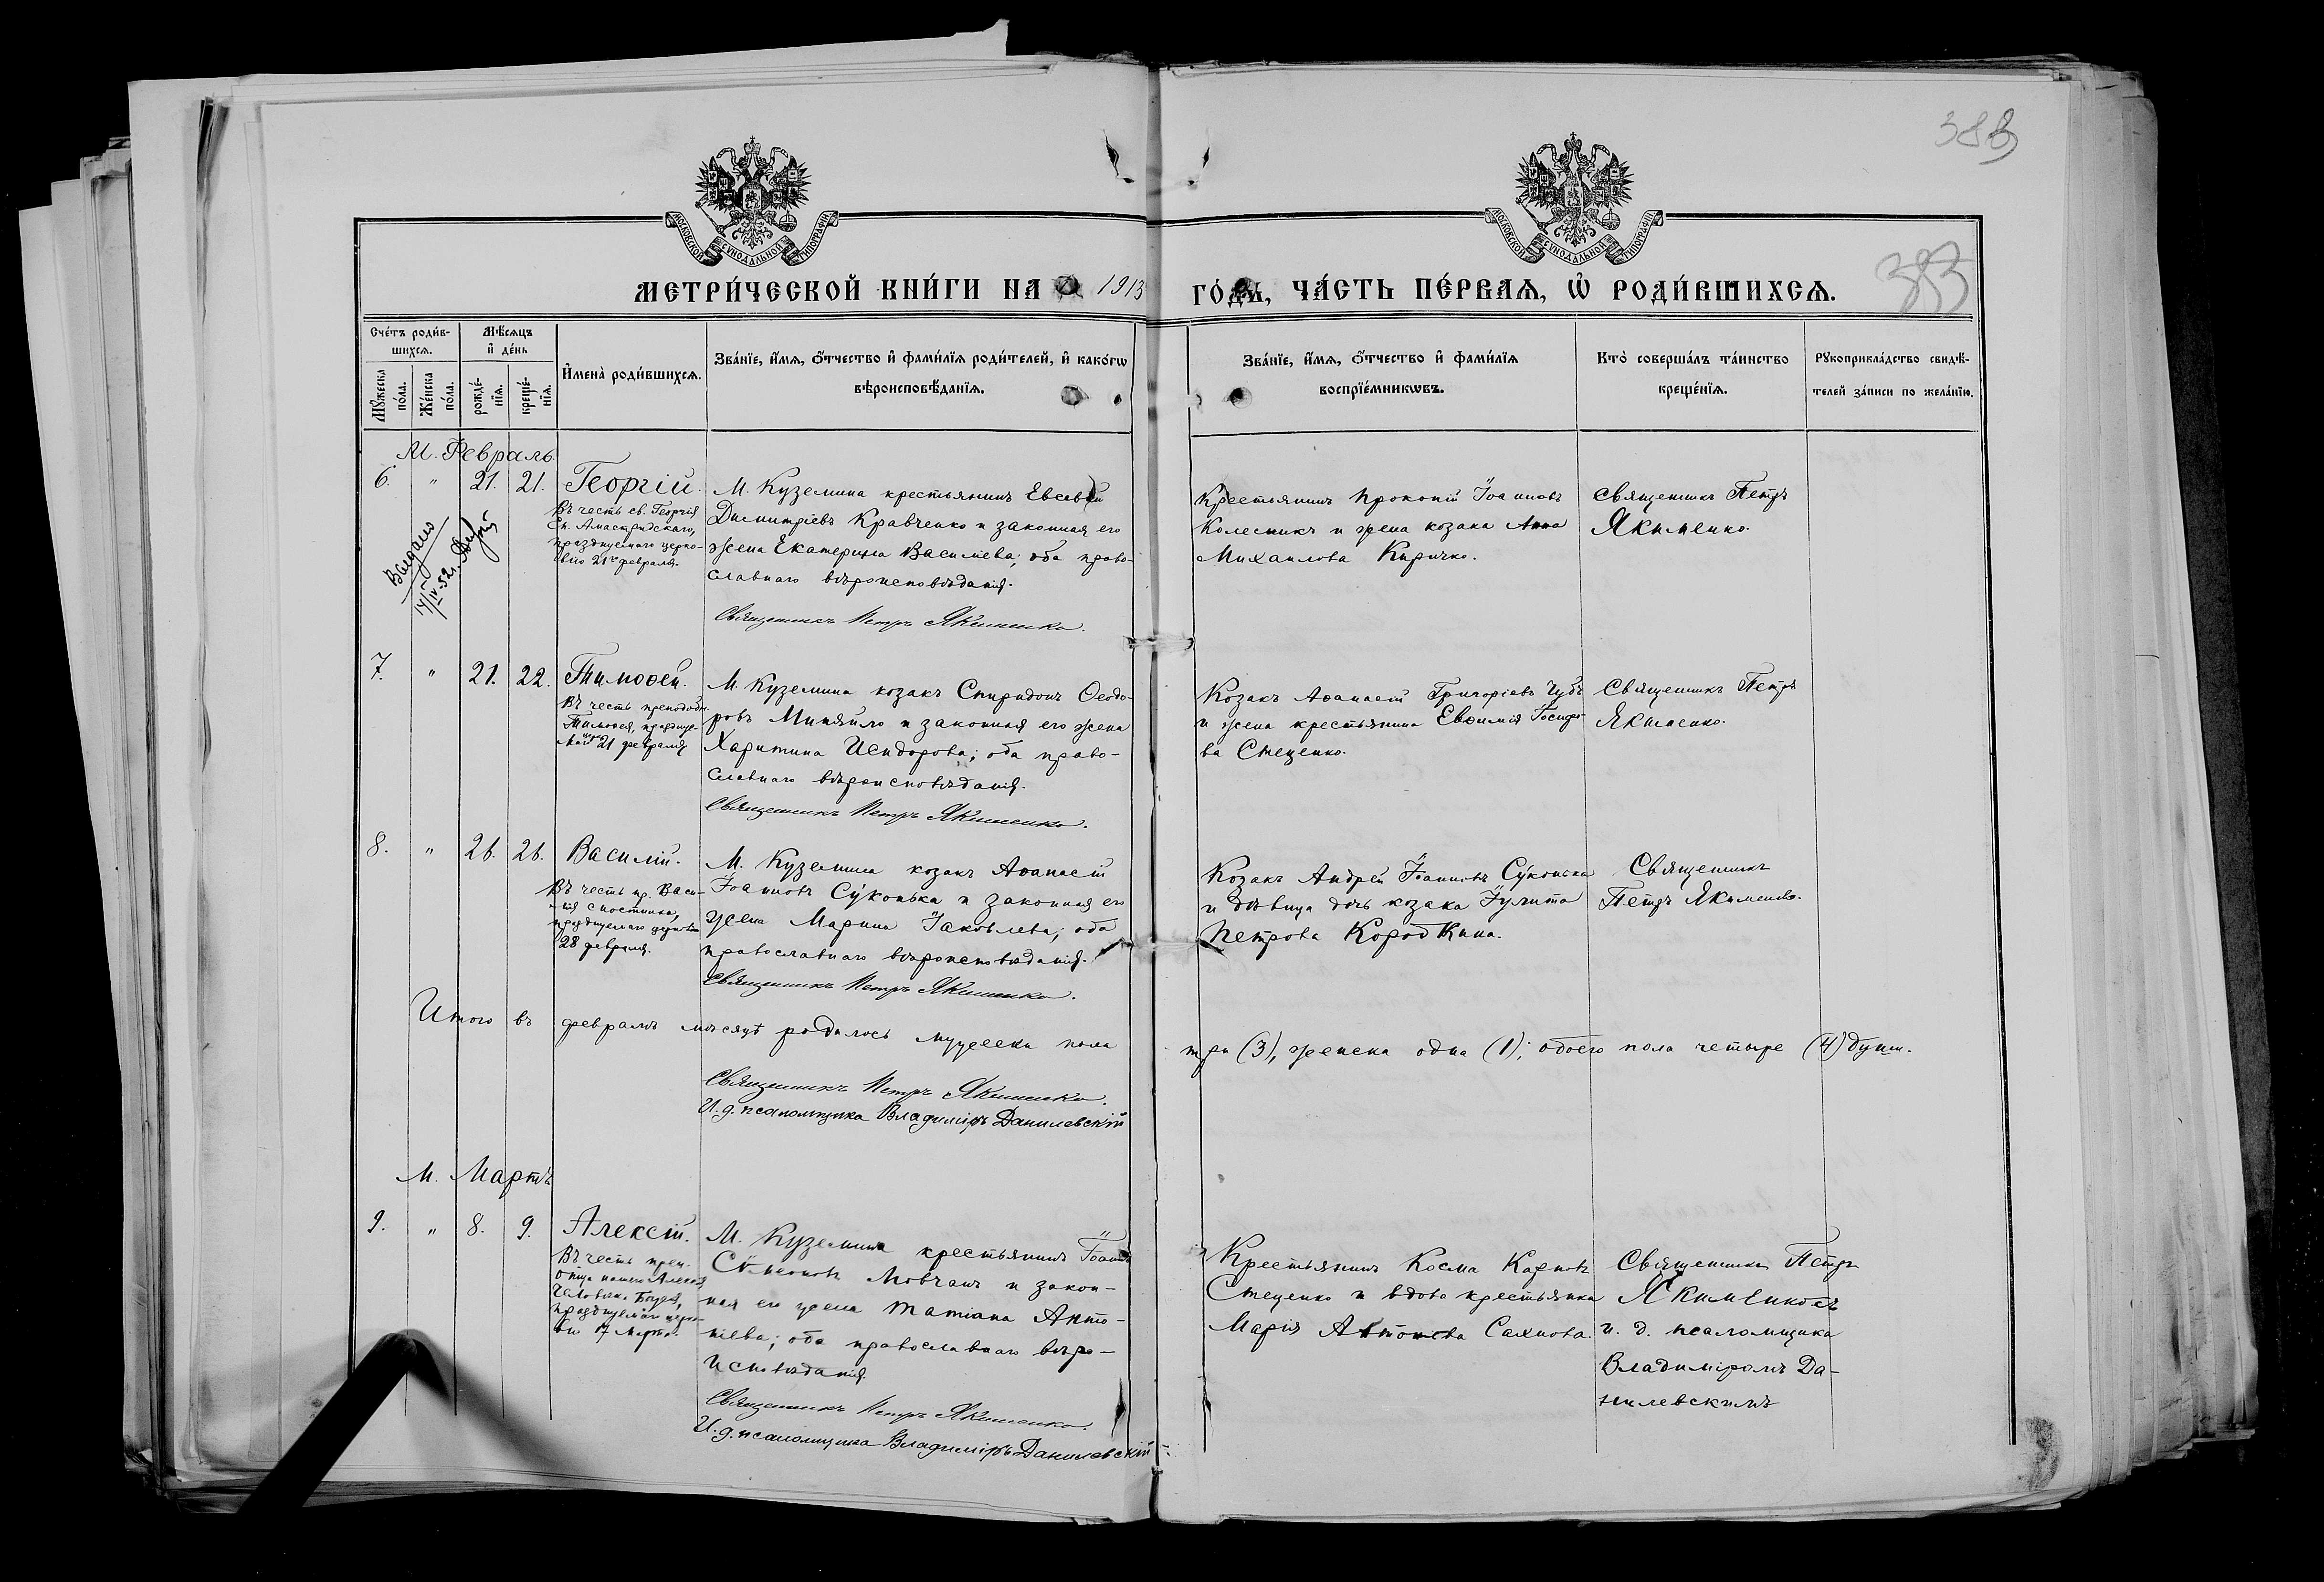 383
383
МОСКОВСКОЙ СѴНОДАЛЬНОЙ ТИПОГРАФІИ
МОСКОВСКОЙ СѴНОДАЛЬНОЙ ТИПОГРАФІИ
МЕТРИ́ЧЕСКОЙ КНИ́ГИ НА 1913 ГО́ДЪ, ЧА́СТЬ ПЕ́РВАѦ, Ѡ҆ РОДИ́ВШИХСѦ.
Сче́тъ роди́в-
шихсѧ.
Мѣ́сѧцъ
и҆ де́нь
Мꙋ́жеска по́ла.
Же́нска по́ла.
рожде́-нїѧ.
креще́-нїѧ.
И҆мена̀ роди́вшихсѧ.
Зва́нїе, и҆́мѧ, ѻ҆́тчество и҆ фами́лїѧ роди́телей, и҆ како́гѡ
вѣроисповѣ́данїѧ.
Зва́нїе, и҆́мѧ, ѻ҆́тчество и҆ фами́лїѧ
воспрїе́мникѡвъ.
Кто̀ соверша́лъ та́инство
креще́нїѧ.
Рꙋкоприкла́дство свидѣ́-
телей за́писи по жела́нїю.
М. Февраль.
6. " 21. 21. Георгій.
Въ честь св. Георгія
Еп. Амастридскаго,
празднуемаго церко-
вію 21го февраля.
Выдано
14/IV-52г.
М. Куземина крестьянинъ Евсевій
Димитріевъ Кравченко и законная его
жена Екатерина Васильева; оба право-
славнаго вѣроисповѣданія.
Священникъ Петръ Якименко.
Крестьянинъ Прокопій Іоанновъ
Колесникъ и жена козака Анна
Михаилова Киричко.
Священникъ Петръ
Якименко.
7. " 21. 22. Тимоѳей.
Въ честь преподобн.
Тимоѳея, празднуе-
маго 21 февраля
М. Куземина козакъ Спиридонъ Ѳеодо-
ровъ Миняйло и законная его жена
Харитина Исидорова; оба право-
славнаго вѣроисповѣданія.
Священникъ Петръ Якименко.
Козакъ Аѳанасій Григоріевъ Чубъ
и жена крестьянина Евѳимія Іосифо-
ва Стеценко.
Священникъ Петръ
Якименко.
8. " 26. 26. Василій.
Въ честь пр. Васи-
лія спостника,
празднуемаго церковію
28 февраля.
М. Куземина козакъ Аѳанасій
Іоанновъ Суконька и законная его
жена Марина Іаковлева; оба
православнаго вѣроисповѣданія.
Священникъ Петръ Якименко.
Козакъ Андрей Іоанновъ Суконька
и дѣвица дочь козака Іулита
Петрова Породкина.
Священникъ
Петръ Якименко.
Итого въ февралѣ мѣсяцѣ родилось мужеска пола три (3), женска одна (1); обоего пола четыре (4) души.
Священникъ Петръ Якименко.
И. д. псаломщика Владиміръ Данилевскій
М. Мартъ
9. " 8. 9. Алексій.
Въ честь преп.
отца нашего Алексія
Человѣка Божія,
празднуемаго церко-
вію 17 марта.
М. Куземина крестьянинъ Іоаннъ
Сѵмеоновъ Мовчанъ и закон-
ная его жена Татіана Анто-
ніева; оба православнаго вѣро-
исповѣданія.
Священникъ Петръ Якименко.
И. д. псаломщика Владиміръ Данилевскій.
Крестьянинъ Косма Карповъ
Стеценко и вдова крестьянка
Марія Антоніева Сахнова.
Священникъ Петръ
Якименко съ
и. д. псаломщика
Владиміромъ Да-
нилевскимъ